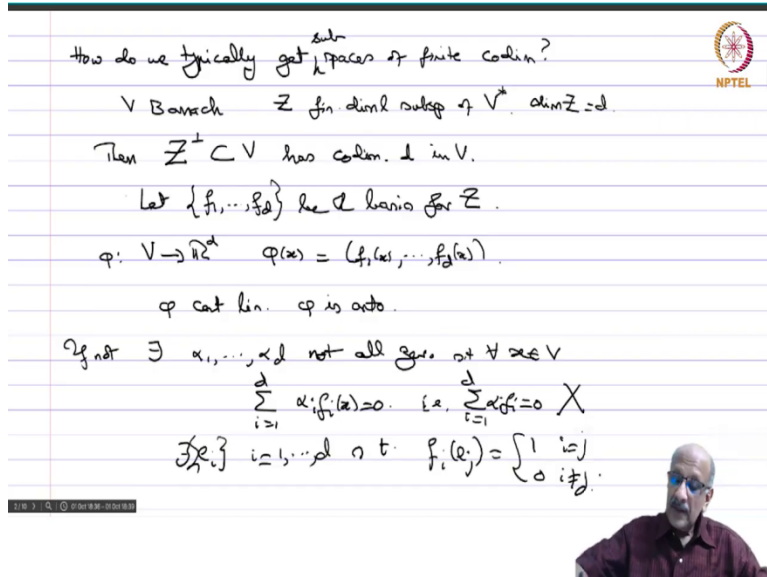 How do we typically get subspaces of finite codim?
NPTEL
V Banach Z fin. diml subsp of V*. dim Z = d.
Then Z^⊥ ⊂ V has codim. d in V.
Let {f₁,..,f_d} be a basis for Z.
φ: V → ℝ^d φ(x) = (f₁(x), ..., f_d(x)).
φ cont lin. φ is onto.
If not ∃ α₁, ..., α_d not all zero s.t ∀ x ∈ V
∑_{i=1}^{d} α_i f_i(x) = 0. i.e. ∑_{i=1}^{d} α_i f_i = 0 X
∃ {e_i} i = 1, .., d s t. f_i(e_j) = { 1 i=j
0 i≠j.
2/10
01 Oct 18:30 - 01 Oct 18:30